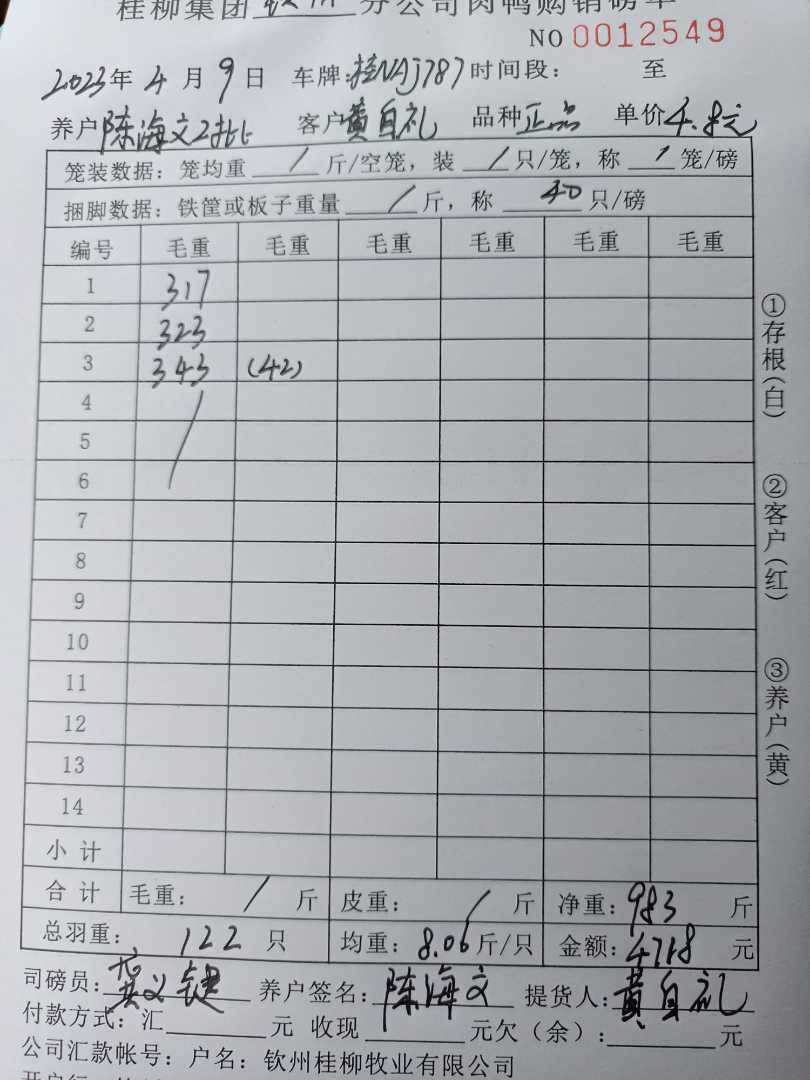 桂柳集团钦州分公司肉鸭购销磅单
NO 0012549
2023年4月9日 车牌:桂NAJ787 时间段: 至
养户陈海文2批 客户黄自礼 品种正品 单价4.8元
笼装数据:笼均重 / 斤/空笼,装 / 只/笼,称 / 笼/磅
捆脚数据:铁筐或板子重量 / 斤,称 40 只/磅
编号 毛重 毛重 毛重 毛重 毛重 毛重
1 317
2 323
3 343 (42)
4 /
5
6
7
8
9
10
11
12
13
14
小计
合计 毛重: / 斤 皮重: / 斤 净重:983 斤
总羽重: 122 只 均重:8.06斤/只 金额:4718 元
司磅员: 义键 养户签名:陈海文 提货人:黄自礼
付款方式:汇 元 收现 元欠(余): 元
公司汇款帐号:户名:钦州桂柳牧业有限公司
①存根(白)
②客户(红)
③养户(黄)